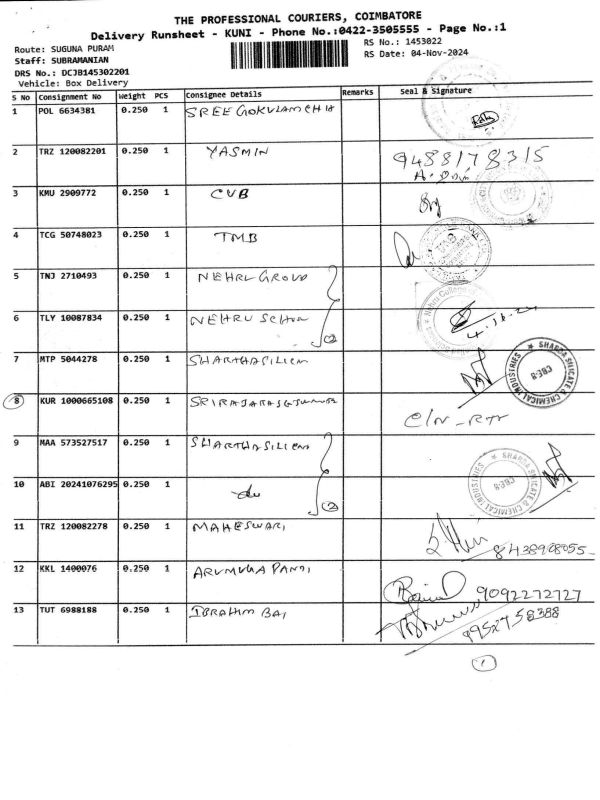 THE PROFESSIONAL COURIERS, COIMBATORE
Delivery Runsheet - KUNI - Phone No.:0422-3505555 - Page No.:1
Route: SUGUNA PURAM
RS No.: 1453022
Staff: SUBRAMANIAN
RS Date: 04-Nov-2024
DRS No.: DCJB145302201
Vehicle: Box Delivery
S No Consignment No Weight PCS Consignee Details Remarks Seal & Signature
1 POL 6634381 0.250 1 SREE GOKULAM CH
2 TRZ 120082201 0.250 1 YASMIN 9488178315
3 KMU 2909772 0.250 1 CUB
4 TCG 50748023 0.250 1 TMB
5 TNJ 2710493 0.250 1 NEHRU GROUP
6 TLY 10087834 0.250 1 NEHRU School (2)
7 MTP 5044278 0.250 1 SHARTHA SILICA
SHARDA SILICATE & CHEMICAL INDUSTRIES
8 KUR 1000665108 0.250 1 SRI RAJA
9 MAA 573527517 0.250 1 SHARTHA SILICA
SHARDA SILICATE & CHEMICAL INDUSTRIES
10 ABI 20241076295 0.250 1 do (2)
11 TRZ 120082278 0.250 1 MAHESWARI 8438908055
12 KKL 1400076 0.250 1 ARUMUGA PANDI 9092272727
13 TUT 6988188 0.250 1 IBRAHIM BAI 9952758388
1